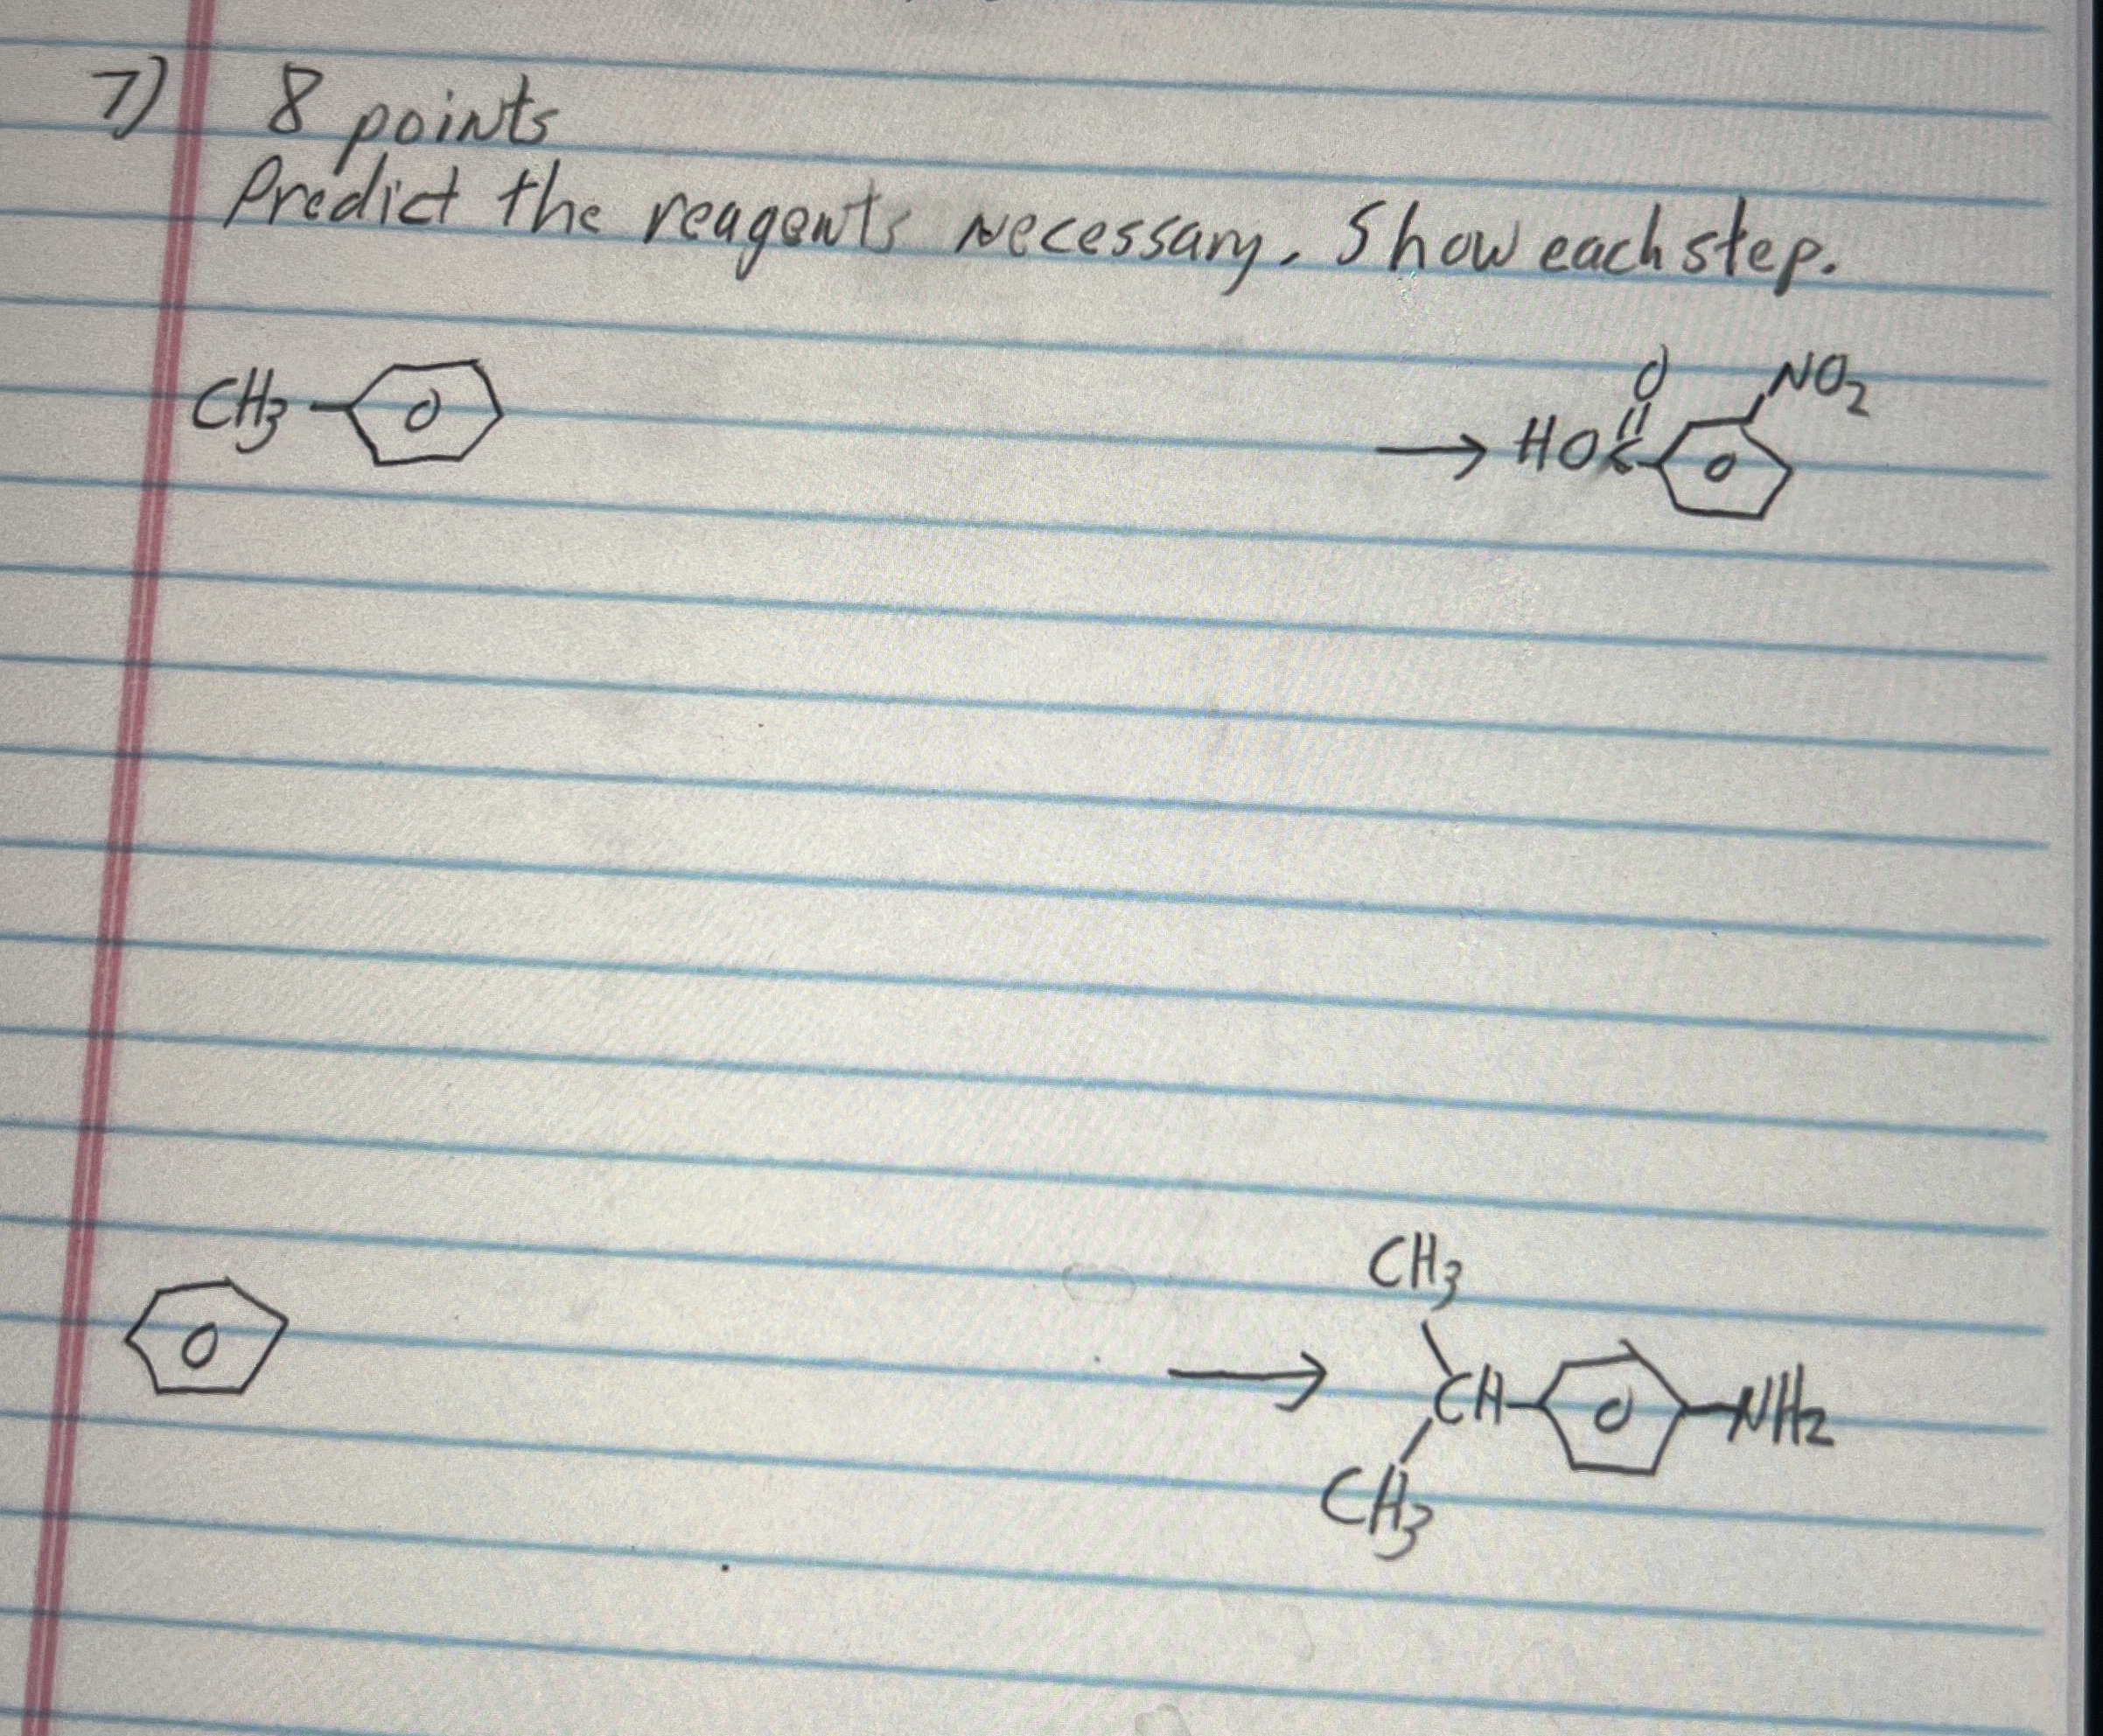 7) 8 points
Predict the reagents necessary. Show each step.
O NO₂
CH₃ → HOC
CH₃
→ CH NH₂
CH₃